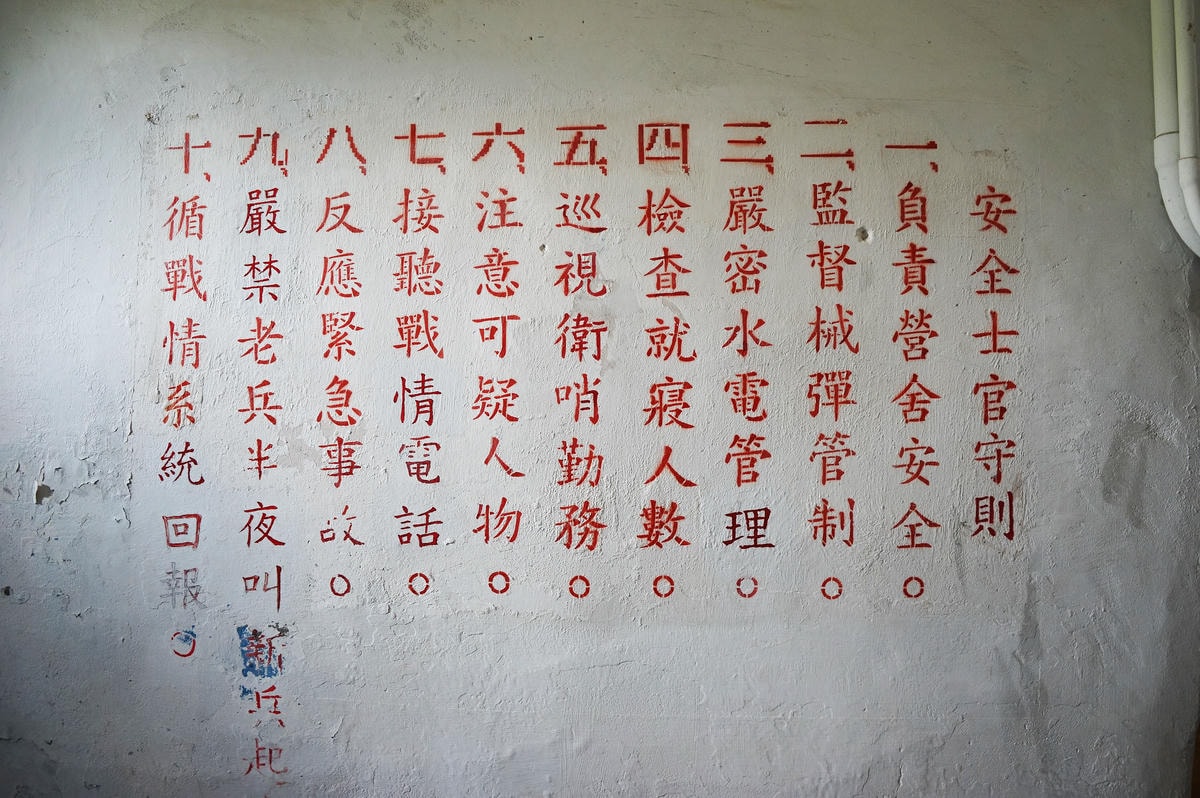 安全士官守則
一、負責營舍安全。
二、監督械彈管制。
三、嚴密水電管理。
四、檢查就寢人數。
五、巡視衛哨勤務。
六、注意可疑人物。
七、接聽戰情電話。
八、反應緊急事故。
九、嚴禁老兵半夜叫新兵起
十、循戰情系統回報。